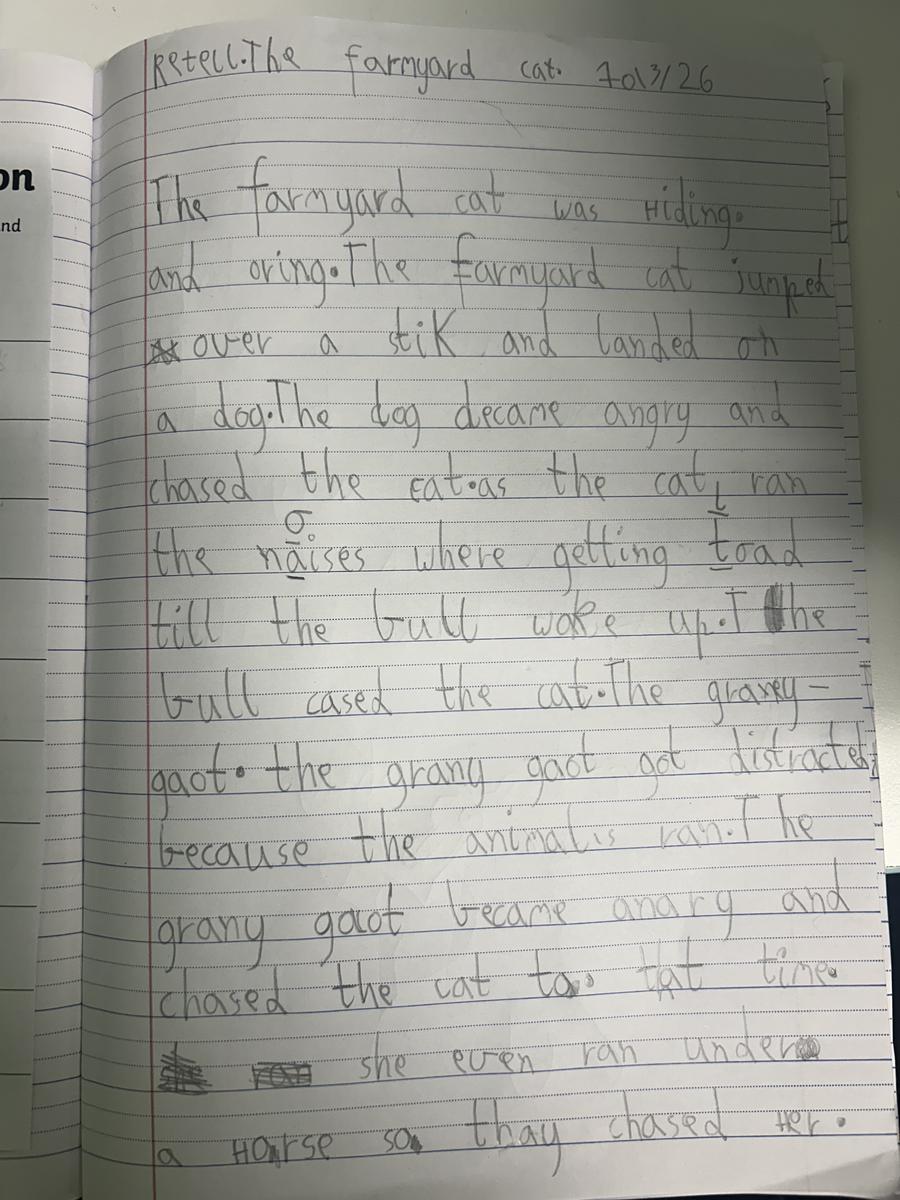 Retell.The farmyard cat.
The farmyard cat was Hiding.
and oring.The farmyard cat jumped
over a stik and landed on
a dog.The dog decame angry and
chased the cat.as the cat ran
the naises where getting toad
till the bull woke up.The
bull cased the cat.The graney-
gaot. the grany gaot got distracted
because the animals ran.The
grany gaot became anarg and
chased the cat to. that time.
she even ran under
a Horse so thay chased Her.
on
nd